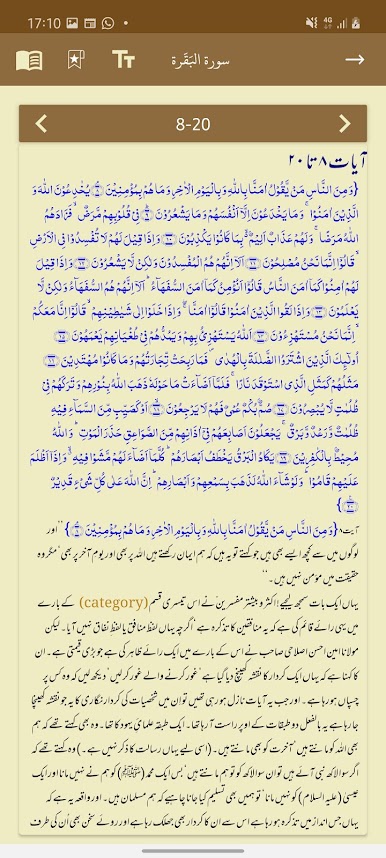 17:10
4G
سورة البَقَرَة
8-20
آیات ۸ تا ۲۰
{وَمِنَ النَّاسِ مَنْ يَّقُوْلُ اٰمَنَّا بِاللّٰهِ وَبِالْيَوْمِ الْاٰخِرِ وَمَا هُمْ بِمُؤْمِنِيْنَ ﴿۸﴾ يُخٰدِعُوْنَ اللّٰهَ وَ
الَّذِيْنَ اٰمَنُوْا ۚ وَمَا يَخْدَعُوْنَ اِلَّآ اَنْفُسَهُمْ وَمَا يَشْعُرُوْنَ ﴿۹﴾ فِيْ قُلُوْبِهِمْ مَّرَضٌ ۙ فَزَادَهُمُ
اللّٰهُ مَرَضًا ۚ وَلَهُمْ عَذَابٌ اَلِيْمٌ ۢ بِمَا كَانُوْا يَكْذِبُوْنَ ﴿۱۰﴾ وَاِذَا قِيْلَ لَهُمْ لَا تُفْسِدُوْا فِي الْاَرْضِ
ۙ قَالُوْٓا اِنَّمَا نَحْنُ مُصْلِحُوْنَ ﴿۱۱﴾ اَلَآ اِنَّهُمْ هُمُ الْمُفْسِدُوْنَ وَلٰكِنْ لَّا يَشْعُرُوْنَ ﴿۱۲﴾ وَاِذَا قِيْلَ
لَهُمْ اٰمِنُوْا كَمَآ اٰمَنَ النَّاسُ قَالُوْٓا اَنُؤْمِنُ كَمَآ اٰمَنَ السُّفَهَآءُ ۗ اَلَآ اِنَّهُمْ هُمُ السُّفَهَآءُ وَلٰكِنْ لَّا
يَعْلَمُوْنَ ﴿۱۳﴾ وَاِذَا لَقُوا الَّذِيْنَ اٰمَنُوْا قَالُوْٓا اٰمَنَّا ۖ وَاِذَا خَلَوْا اِلٰى شَيٰطِيْنِهِمْ ۙ قَالُوْٓا اِنَّا مَعَكُمْ
ۙ اِنَّمَا نَحْنُ مُسْتَهْزِءُوْنَ ﴿۱۴﴾ اَللّٰهُ يَسْتَهْزِئُ بِهِمْ وَيَمُدُّهُمْ فِيْ طُغْيَانِهِمْ يَعْمَهُوْنَ ﴿۱۵﴾
اُولٰٓئِكَ الَّذِيْنَ اشْتَرَوُا الضَّلٰلَةَ بِالْهُدٰى ۪ فَمَا رَبِحَتْ تِّجَارَتُهُمْ وَمَا كَانُوْا مُهْتَدِيْنَ ﴿۱۶﴾
مَثَلُهُمْ كَمَثَلِ الَّذِى اسْتَوْقَدَ نَارًا ۚ فَلَمَّآ اَضَآءَتْ مَا حَوْلَهٗ ذَهَبَ اللّٰهُ بِنُوْرِهِمْ وَتَرَكَهُمْ فِيْ
ظُلُمٰتٍ لَّا يُبْصِرُوْنَ ﴿۱۷﴾ صُمٌّ ۢ بُكْمٌ عُمْيٌ فَهُمْ لَا يَرْجِعُوْنَ ﴿۱۸﴾ اَوْ كَصَيِّبٍ مِّنَ السَّمَآءِ فِيْهِ
ظُلُمٰتٌ وَّرَعْدٌ وَّبَرْقٌ ۚ يَجْعَلُوْنَ اَصَابِعَهُمْ فِيْٓ اٰذَانِهِمْ مِّنَ الصَّوَاعِقِ حَذَرَ الْمَوْتِ ۗ وَاللّٰهُ
مُحِيْطٌ ۢ بِالْكٰفِرِيْنَ ﴿۱۹﴾ يَكَادُ الْبَرْقُ يَخْطَفُ اَبْصَارَهُمْ ۗ كُلَّمَآ اَضَآءَ لَهُمْ مَّشَوْا فِيْهِ ۙ وَاِذَآ اَظْلَمَ
عَلَيْهِمْ قَامُوْا ۗ وَلَوْ شَآءَ اللّٰهُ لَذَهَبَ بِسَمْعِهِمْ وَاَبْصَارِهِمْ ۗ اِنَّ اللّٰهَ عَلٰى كُلِّ شَيْءٍ قَدِيْرٌ
﴿۲۰﴾}
آیت ۸ {وَمِنَ النَّاسِ مَنْ يَّقُوْلُ اٰمَنَّا بِاللّٰهِ وَبِالْيَوْمِ الْاٰخِرِ وَمَا هُمْ بِمُؤْمِنِيْنَ ﴿۸﴾} ’’اور
لوگوں میں سے کچھ ایسے بھی ہیں جو کہتے تو یہ ہیں کہ ہم ایمان رکھتے ہیں اللہ پر بھی اور یوم آخر پر بھی‘ مگر وہ
حقیقت میں مؤمن نہیں ہیں۔‘‘
یہاں ایک بات سمجھ لیجیے! اکثر و بیشتر مفسرین نے اس تیسری قسم (category) کے بارے
میں یہی رائے قائم کی ہے کہ یہ منافقین کا تذکرہ ہے‘ اگرچہ یہاں لفظ منافق یا لفظ نفاق نہیں آیا۔ لیکن
مولانا امین احسن اصلاحی صاحب نے اس کے بارے میں ایک رائے ظاہر کی ہے جو بڑی قیمتی ہے۔ ان
کا کہنا ہے کہ یہاں ایک کردار کا نقشہ کھینچ دیا گیا ہے‘ غور کرنے والے غور کر لیں‘ دیکھ لیں کہ وہ کس پر
چسپاں ہو رہا ہے۔ اور جب یہ آیات نازل ہو رہی تھیں تو ان میں شخصیات کی کردار نگاری کا یہ جو نقشہ کھینچا
جا رہا ہے یہ بالفعل دو طبقات کے اوپر راست آ رہا تھا۔ ایک طبقہ علمائے یہود کا تھا۔ وہ بھی کہتے تھے کہ ہم
بھی اللہ کو مانتے ہیں‘ آخرت کو بھی مانتے ہیں۔ (اسی لیے یہاں رسالت کا ذکر نہیں ہے۔) وہ کہتے تھے کہ
اگر سوا لاکھ نبی آئے ہیں تو ان سوا لاکھ کو تو ہم مانتے ہیں‘ بس ایک محمد (ﷺ) کو ہم نے نہیں مانا اور ایک
عیسیٰ (علیہ السلام) کو نہیں مانا‘ تو ہمیں بھی تسلیم کیا جانا چاہیے کہ ہم مسلمان ہیں۔ اور واقعہ یہ ہے کہ
یہاں جس انداز میں تذکرہ ہو رہا ہے اس سے ان کا کردار بھی جھلک رہا ہے اور روئے سخن بھی اُن کی طرف